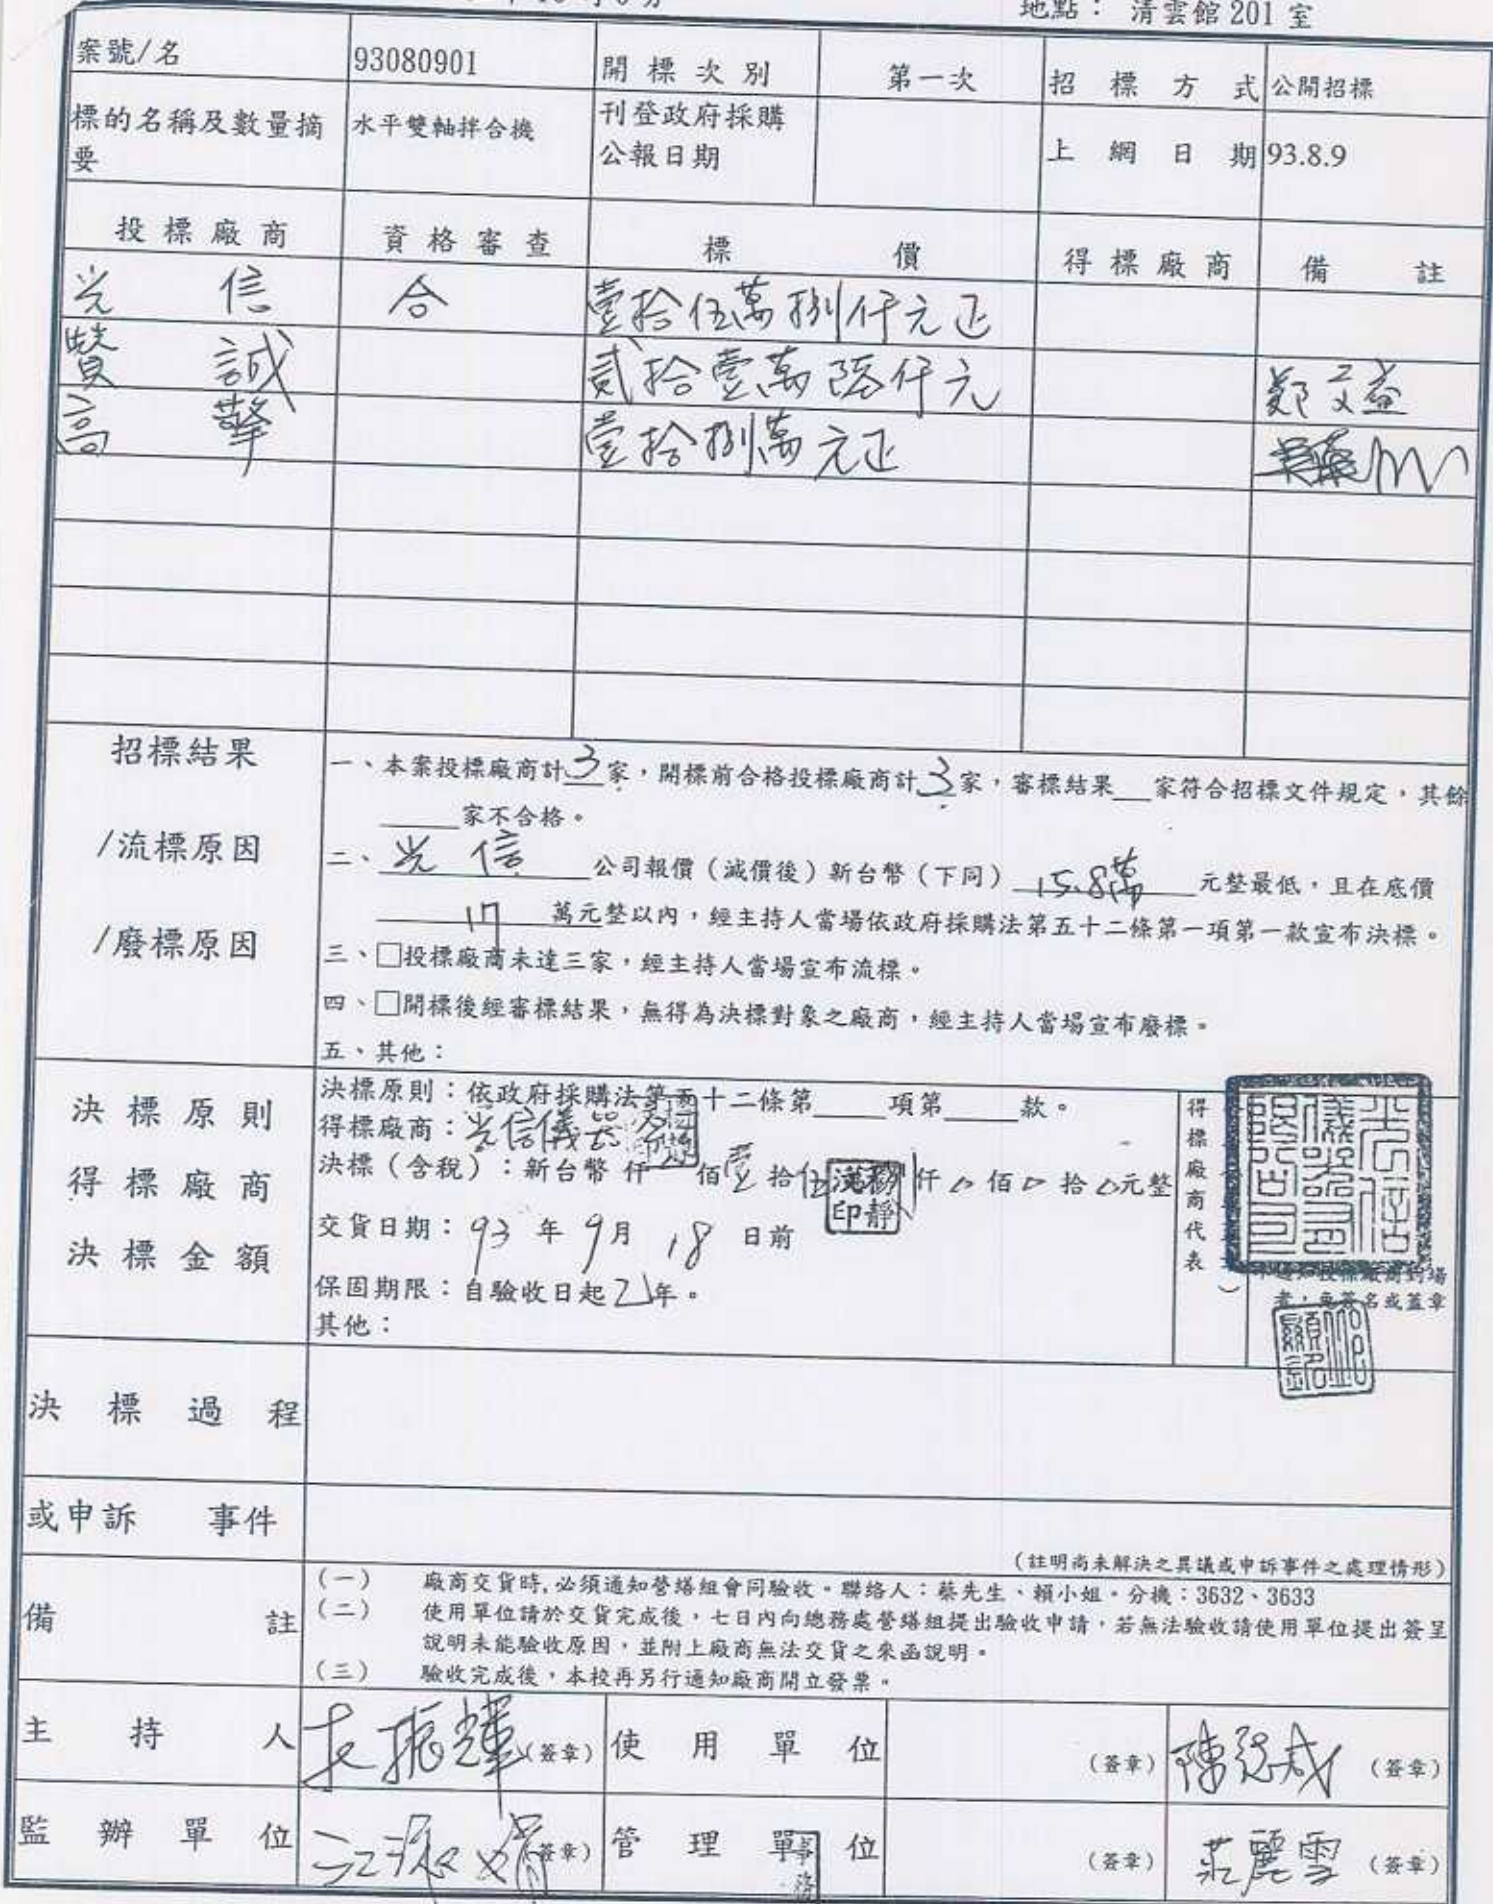 地點： 清雲館 201 室
案號/名 93080901 開標次別 第一次 招標方式 公開招標
標的名稱及數量摘要 水平雙軸拌合機 刊登政府採購公報日期 上網日期 93.8.9
投標廠商 資格審查 標價 得標廠商 備註
光信 合 壹拾伍萬捌仟元正
贊誠 貳拾壹萬陸仟元 鄭文益
高擎 壹拾捌萬元正
招標結果
/流標原因
/廢標原因
一、本案投標廠商計3家，開標前合格投標廠商計3家，審標結果__家符合招標文件規定，其餘
____家不合格。
二、光信公司報價（減價後）新台幣（下同）15.8萬元整最低，且在底價
17萬元整以內，經主持人當場依政府採購法第五十二條第一項第一款宣布決標。
三、□投標廠商未達三家，經主持人當場宣布流標。
四、□開標後經審標結果，無得為決標對象之廠商，經主持人當場宣布廢標。
五、其他：
決標原則
得標廠商
決標金額
決標原則：依政府採購法第五十二條第____項第____款。
得標廠商：光信儀器
決標（含稅）：新台幣 仟 佰壹拾伍 仟 0 佰 0 拾 0 元整
交貨日期：93 年 9 月 18 日前
保固期限：自驗收日起 年。
其他：
得標廠商代表
者，免簽名或蓋章
決標過程
或申訴 事件
（註明尚未解決之異議或申訴事件之處理情形）
備註
（一） 廠商交貨時,必須通知營繕組會同驗收。聯絡人：蔡先生、賴小姐。分機：3632、3633
（二） 使用單位請於交貨完成後，七日內向總務處營繕組提出驗收申請，若無法驗收請使用單位提出簽呈
說明未能驗收原因，並附上廠商無法交貨之來函說明。
（三） 驗收完成後，本校再另行通知廠商開立發票。
主持人 （簽章） 使用單位 （簽章） （簽章）
監辦單位 （簽章） 管理單位 （簽章） 莊麗雪 （簽章）